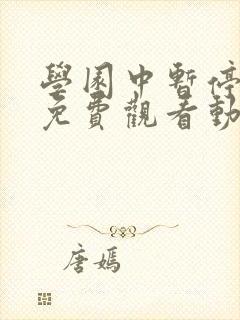 學園中暫停
免費觀看動
唐嫣